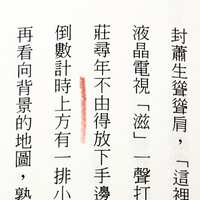 封蕭生聳聳肩，「這裡
液晶電視「滋」一聲打
莊尋年不由得放下手邊
倒數計時上方有一排小
再看向背景的地圖，熟